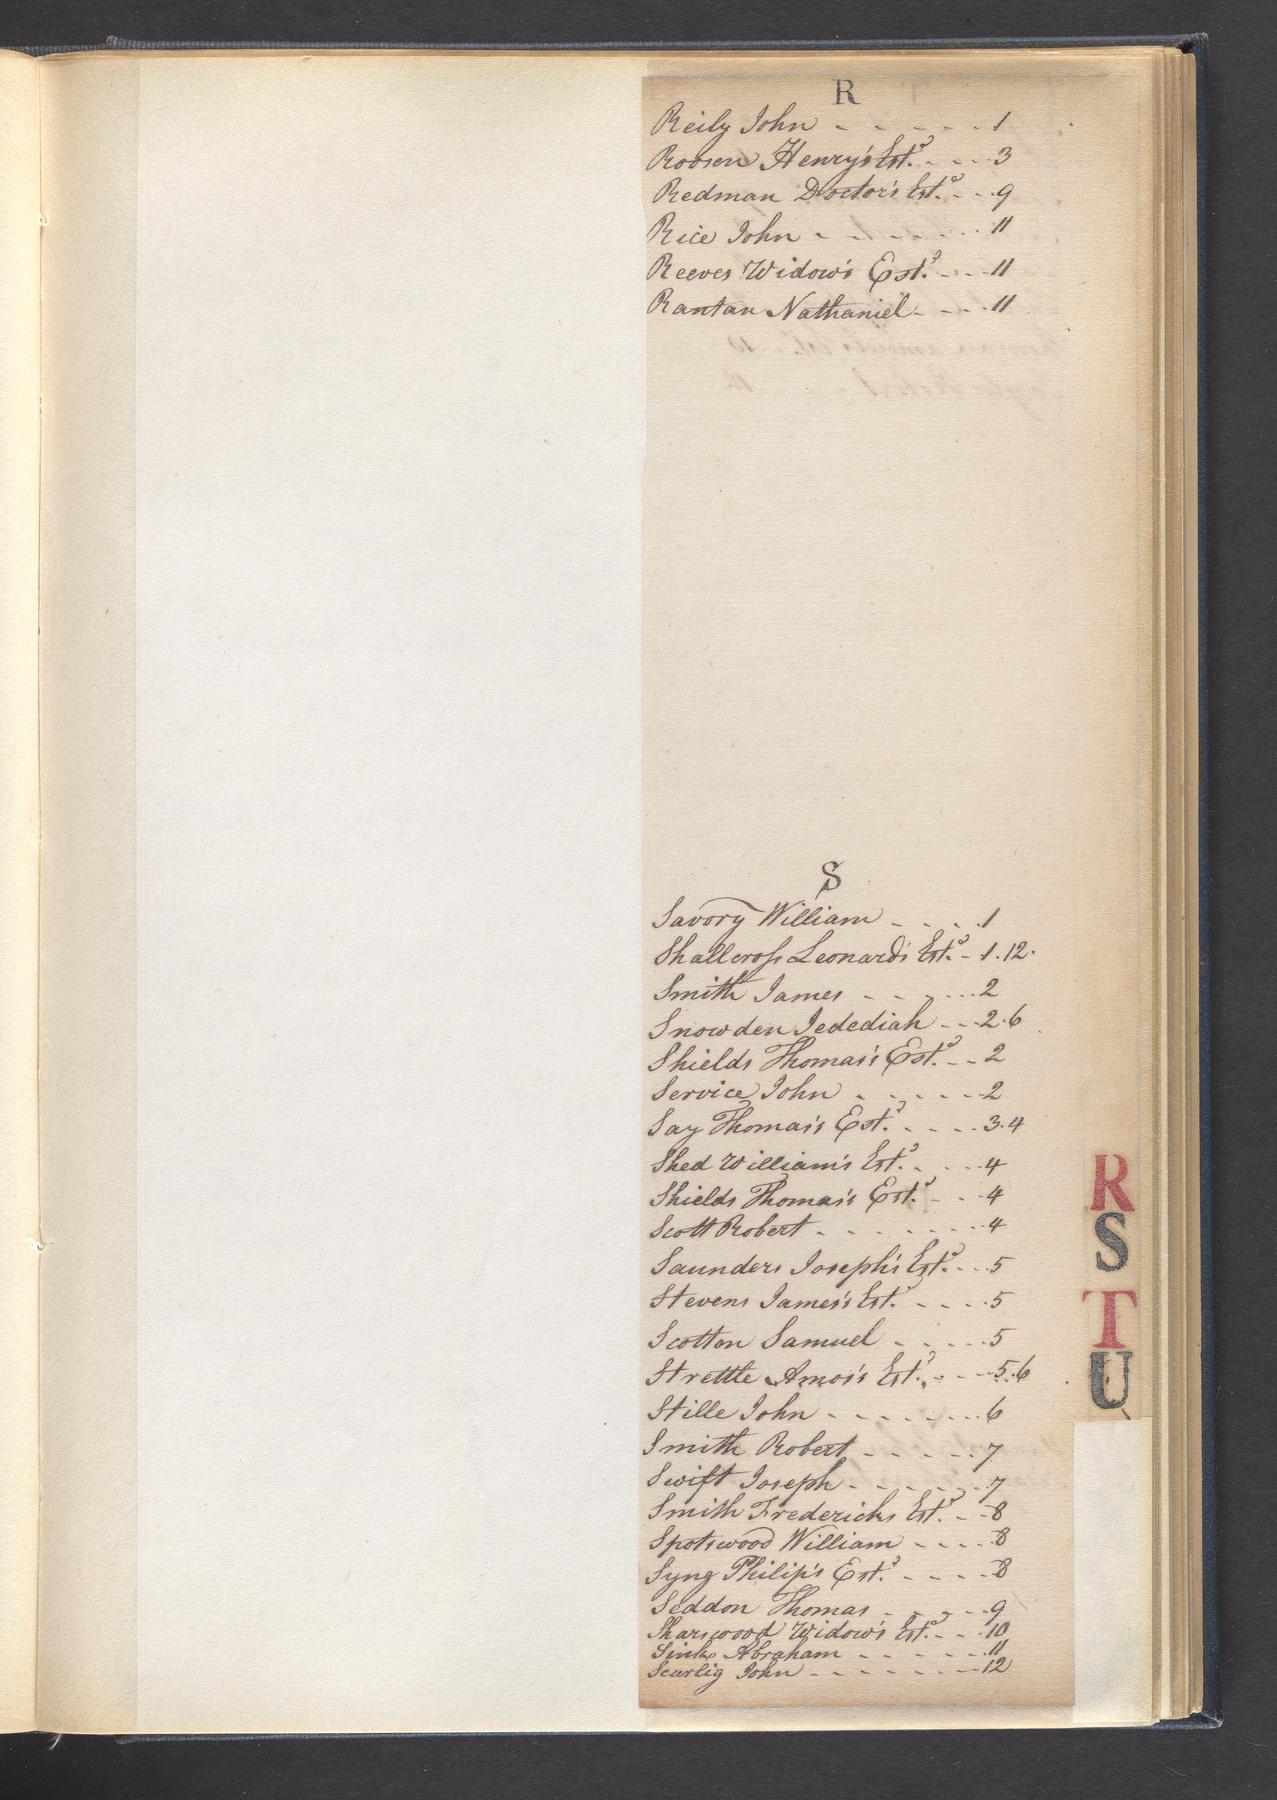 R
Reily John - - - - - - 1
Roosen Henry's Est.e - - - 3
Redman Doctor's Est.e - - 9
Rice John - - - - - - - 11
Reeves Widow's Est.e - - - 11
Rantan Nathaniel - - - - 11
S
Savory William - - - - 1
Shallcross Leonard's Est.e - 1.12.
Smith James - - - - - - 2
Snowden Jedediah - - - 2.6
Shields Thomas's Est.e - - 2
Service John - - - - - - 2
Say Thomas's Est.e - - - - 3.4
Shed William's Est.e - - - 4
Shields Thomas's Est.e - - - 4
Scott Robert - - - - - - - 4
Saunders Joseph's Est.e - - - 5
Stevens James's Est.e - - - - 5
Scotton Samuel - - - - - 5
Strettle Amos's Est.e - - - - 5.6
Stille John - - - - - - - - 6
Smith Robert - - - - - 7
Swift Joseph - - - - - - 7
Smith Fredericks Est.e - - 8
Spotswood William - - - - 8
Syng Philip's Est.e - - - - 8
Seddon Thomas - - - - 9
Sharswood Widow's Est.e - - 10
Sink Abraham - - - - - - 11
Scurlig John - - - - - - - - 12
R
S
T
U